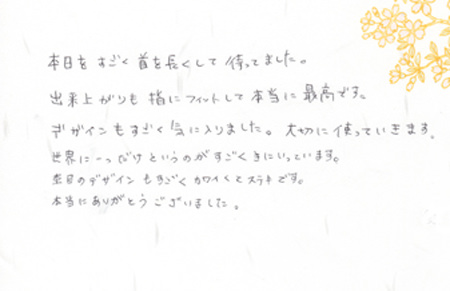 本日を すごく 首を長くして 待ってました。
出来上がりも 指にフィットして 本当に 最高です。
デザインもすごく気に入りました。大切に使っていきます。
世界に一つだけ というのが すごく きにいっています。
空目のデザイン もすごく カワイくて ステキです。
本当にありがとうございました。